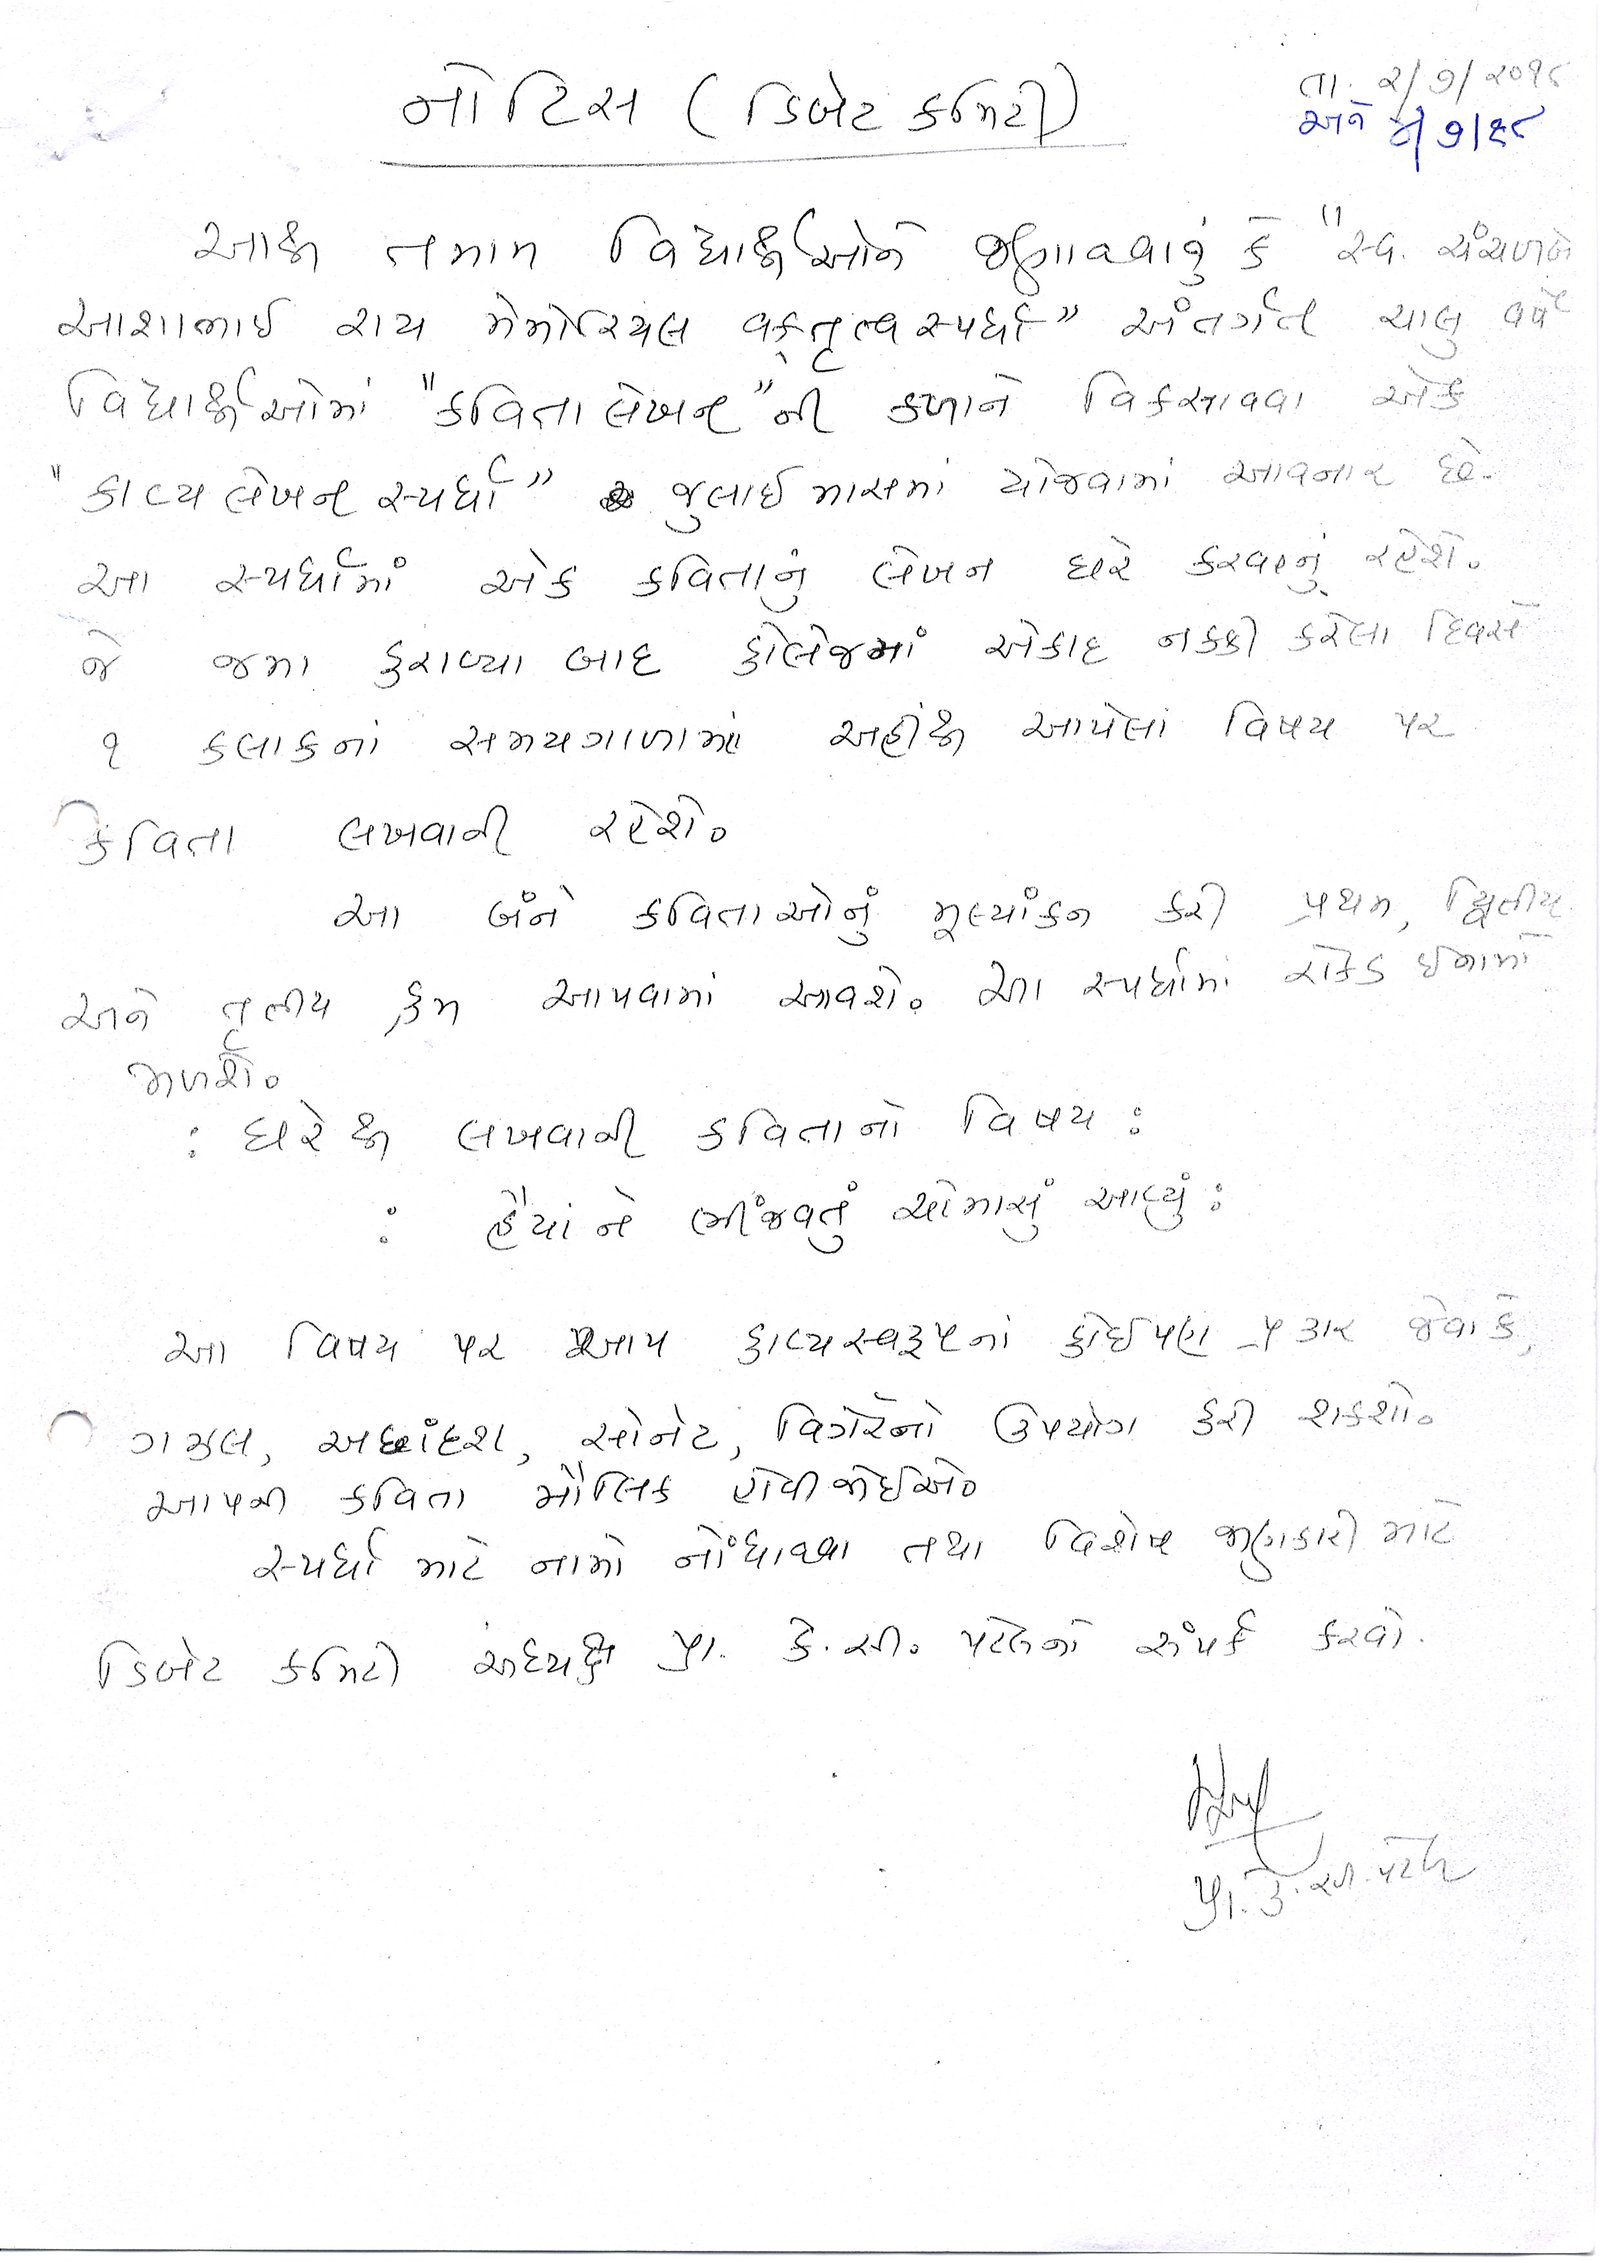 નોટિસ (ડિબેટ કમિટી)
તા. ૨/૭/૨૦૧૮
અને ૪/૭/૧૮
આથી તમામ વિદ્યાર્થીઓને જણાવવાનું કે "સ્વ. ચંચળબેન
આશાભાઈ રાય મેમોરિયલ વક્તૃત્વસ્પર્ધા" અંતર્ગત ચાલુ વર્ષે
વિદ્યાર્થીઓમાં "કવિતા લેખન"ની કળાને વિકસાવવા એક
"કાવ્ય લેખન સ્પર્ધા" જુલાઈ માસમાં યોજવામાં આવનાર છે.
આ સ્પર્ધામાં એક કવિતાનું લેખન ઘરે કરવાનું રહેશે.
જે જમા કરાવ્યા બાદ કોલેજમાં એકાદ નક્કી કરેલા દિવસે
૧ કલાકનાં સમયગાળામાં અહીંથી આપેલાં વિષય પર
કવિતા લખવાની રહેશે.
આ બંને કવિતાઓનું મૂલ્યાંકન કરી પ્રથમ, દ્વિતીય
અને તૃતીય ક્રમ આપવામાં આવશે. આ સ્પર્ધામાં રોકડ ઈનામો
મળશે.
: ઘરેથી લખવાની કવિતાનો વિષય :
: હૈયાંને ભીંજવતું ચોમાસું આવ્યું :
આ વિષય પર આપ કાવ્યસ્વરૂપનાં કોઈપણ પ્રકાર જેવા કે,
ગઝલ, અછાંદશ, સોનેટ, વિગેરેનો ઉપયોગ કરી શકશો.
આપની કવિતા મૌલિક હોવી જોઈએ.
સ્પર્ધા માટે નામો નોંધાવવા તથા વિશેષ જાણકારી માટે
ડિબેટ કમિટી અધ્યક્ષ પ્રા. કે. સી. પટેલનો સંપર્ક કરવો.
પ્રા. કે. સી. પટેલ